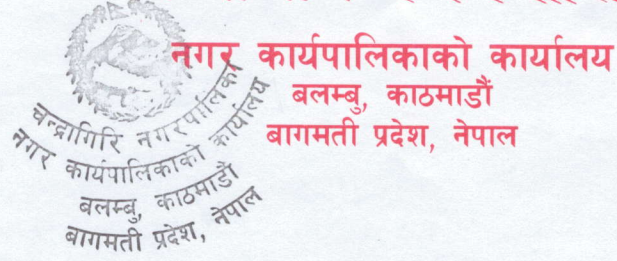 नगर कार्यपालिकाको कार्यालय
बलम्बु, काठमाडौं
बागमती प्रदेश, नेपाल
चन्द्रागिरि नगरपालिका
नगर कार्यपालिकाको कार्यालय
बलम्बु, काठमाडौं
बागमती प्रदेश, नेपाल